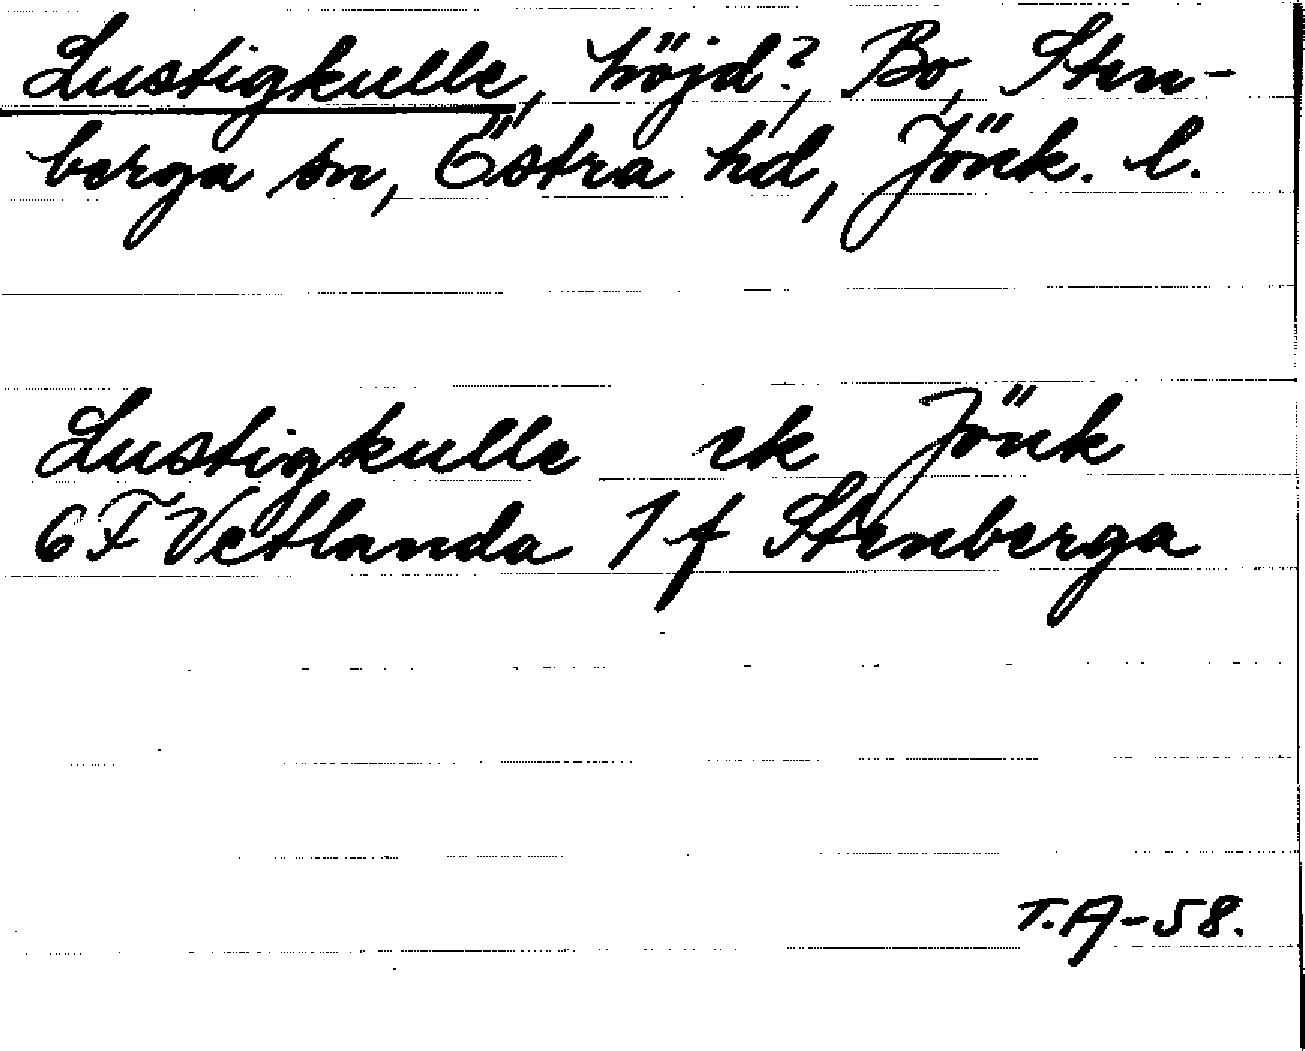 Lustigkulle, höjd?, Bo, Sten-
berga sn, Östra hd, Jönk. l.
Lustigkulle ek Jönk
6F Vetlanda 7 f Stenberga
T.A-58.